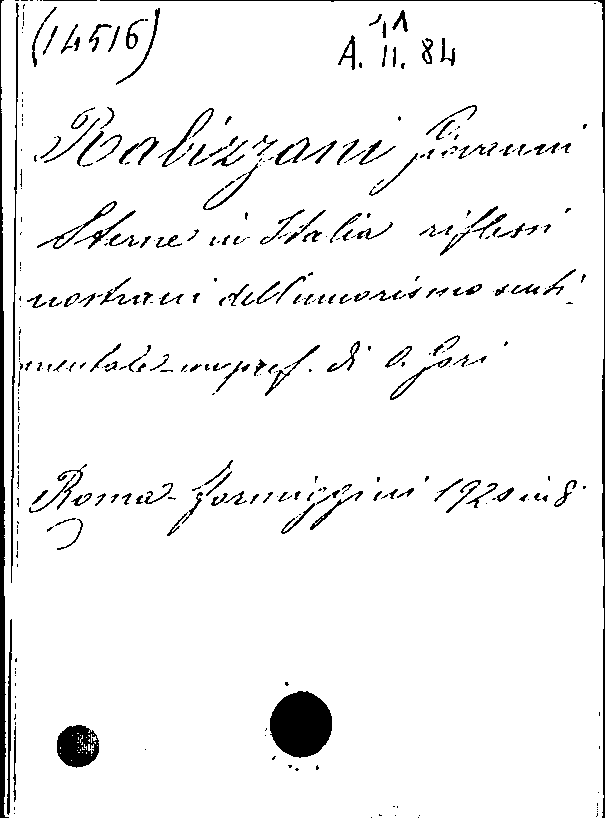 (14516)
11
A. 11. 84
Rabizzani Giovanni
Sterne in Italia riflessi
nostrani dell'umorismo senti-
mentale - con pref. di O. Gori
Roma - Formiggini 1920 in 8°